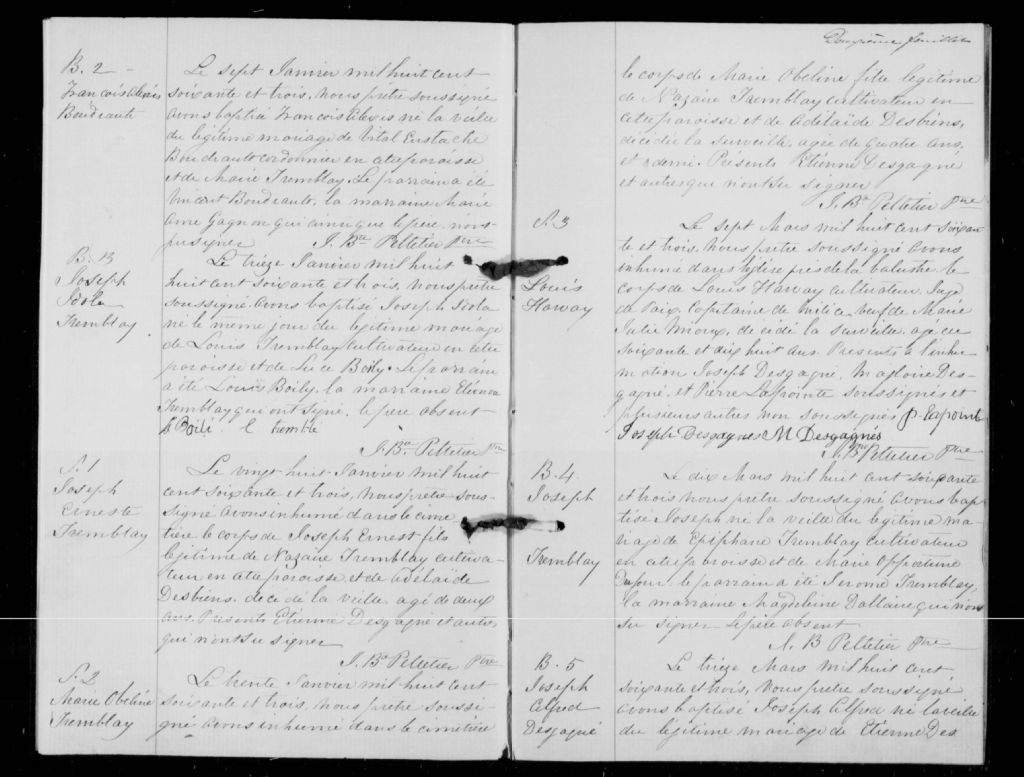 B. 2 -
Francois Alexis
Boudrault
Le sept Janvier mil huit cent
soixante et trois, nous prêtre soussigné
avons baptisé Francois Alexis né la veille
du légitime mariage de Vital Eustache
Boudrault cordonnier en cette paroisse
et de Marie Tremblay. Le parrain a été
Vincent Boudrault, la marraine Marie
Anne Gagnon qui ainsi que le père n'ont
pu signer
J. Bte Pelletier Ptre
B. 3
Joseph
Tremblay
Le trèze Janvier mil huit
huit cent soixante et trois, nous prêtre
soussigné avons baptisé Joseph
né le même jour du légitime mariage
de Louis Tremblay cultivateur en cette
paroisse et de Luce Boily. Le parrain
a été Louis Boily, la marraine Eléonore
Tremblay qui ont signé, le père absent
J. Bte Pelletier Ptre
S. 1
Joseph
Erneste
Tremblay
Le vingt huit Janvier mil huit
cent soixante et trois, nous prêtre sous-
signé avons inhumé dans le cime
tière le corps de Joseph Ernest fils
légitime de Nazaire Tremblay cultiva-
teur en cette paroisse et de Adélaïde
Desbiens, décédé la veille agé de deux
ans. Présents Etienne Desgagné et autres
qui n'ont su signer
J. Bte Pelletier Ptre
S. 2
Marie Obéline
Tremblay
Le trente Janvier mil huit cent
soixante et trois, nous prêtre soussi-
gné avons inhumé dans le cimetière
Deuxième feuillet
le corps de Marie Obeline fille légitime
de Nazaire Tremblay cultivateur en
cette paroisse et de Adélaïde Desbiens,
décédée la surveille, agée de quatre ans,
et demi. Présents Etienne Desgagné
et autres qui n'ont su signer
J. Bte Pelletier Ptre
S. 3
Louis
Harvay
Le sept Mars mil huit cent soixan
te et trois, nous prêtre soussigné avons
inhumé dans l'église près de la balustre le
corps de Louis Harvay cultivateur, Juge
de Paix, Capitaine de milice veuf de Marie
Julie décédé la surveille, agé de
soixante et dix huit ans. Présents à l'inhu
mation Joseph Desgagné, Magloire Des-
gagné, et Pierre Lapointe soussignés et
plusieurs autres non soussignés P. Lapoint
Joseph Desgagnes M Desgagnés
J. Bte Pelletier Ptre
B. 4
Joseph
Tremblay
Le dix Mars mil huit cent soixante
et trois nous prêtre soussigné avons bap
tisé Joseph né la veille du légitime ma-
riage de Epiphane Tremblay cultivateur
en cette paroisse et de Marie Opportune
Dufour. le parrain a été Jerome Tremblay,
la marraine Magdeleine Dallaire qui n'ont
su signer le père absent
J. B Pelletier Ptre
B. 5
Joseph
Alfred
Desgagné
Le trèze Mars mil huit cent
soixante et trois, nous prêtre soussigné
avons baptisé Joseph Alfred né la veille
du légitime mariage de Etienne Des